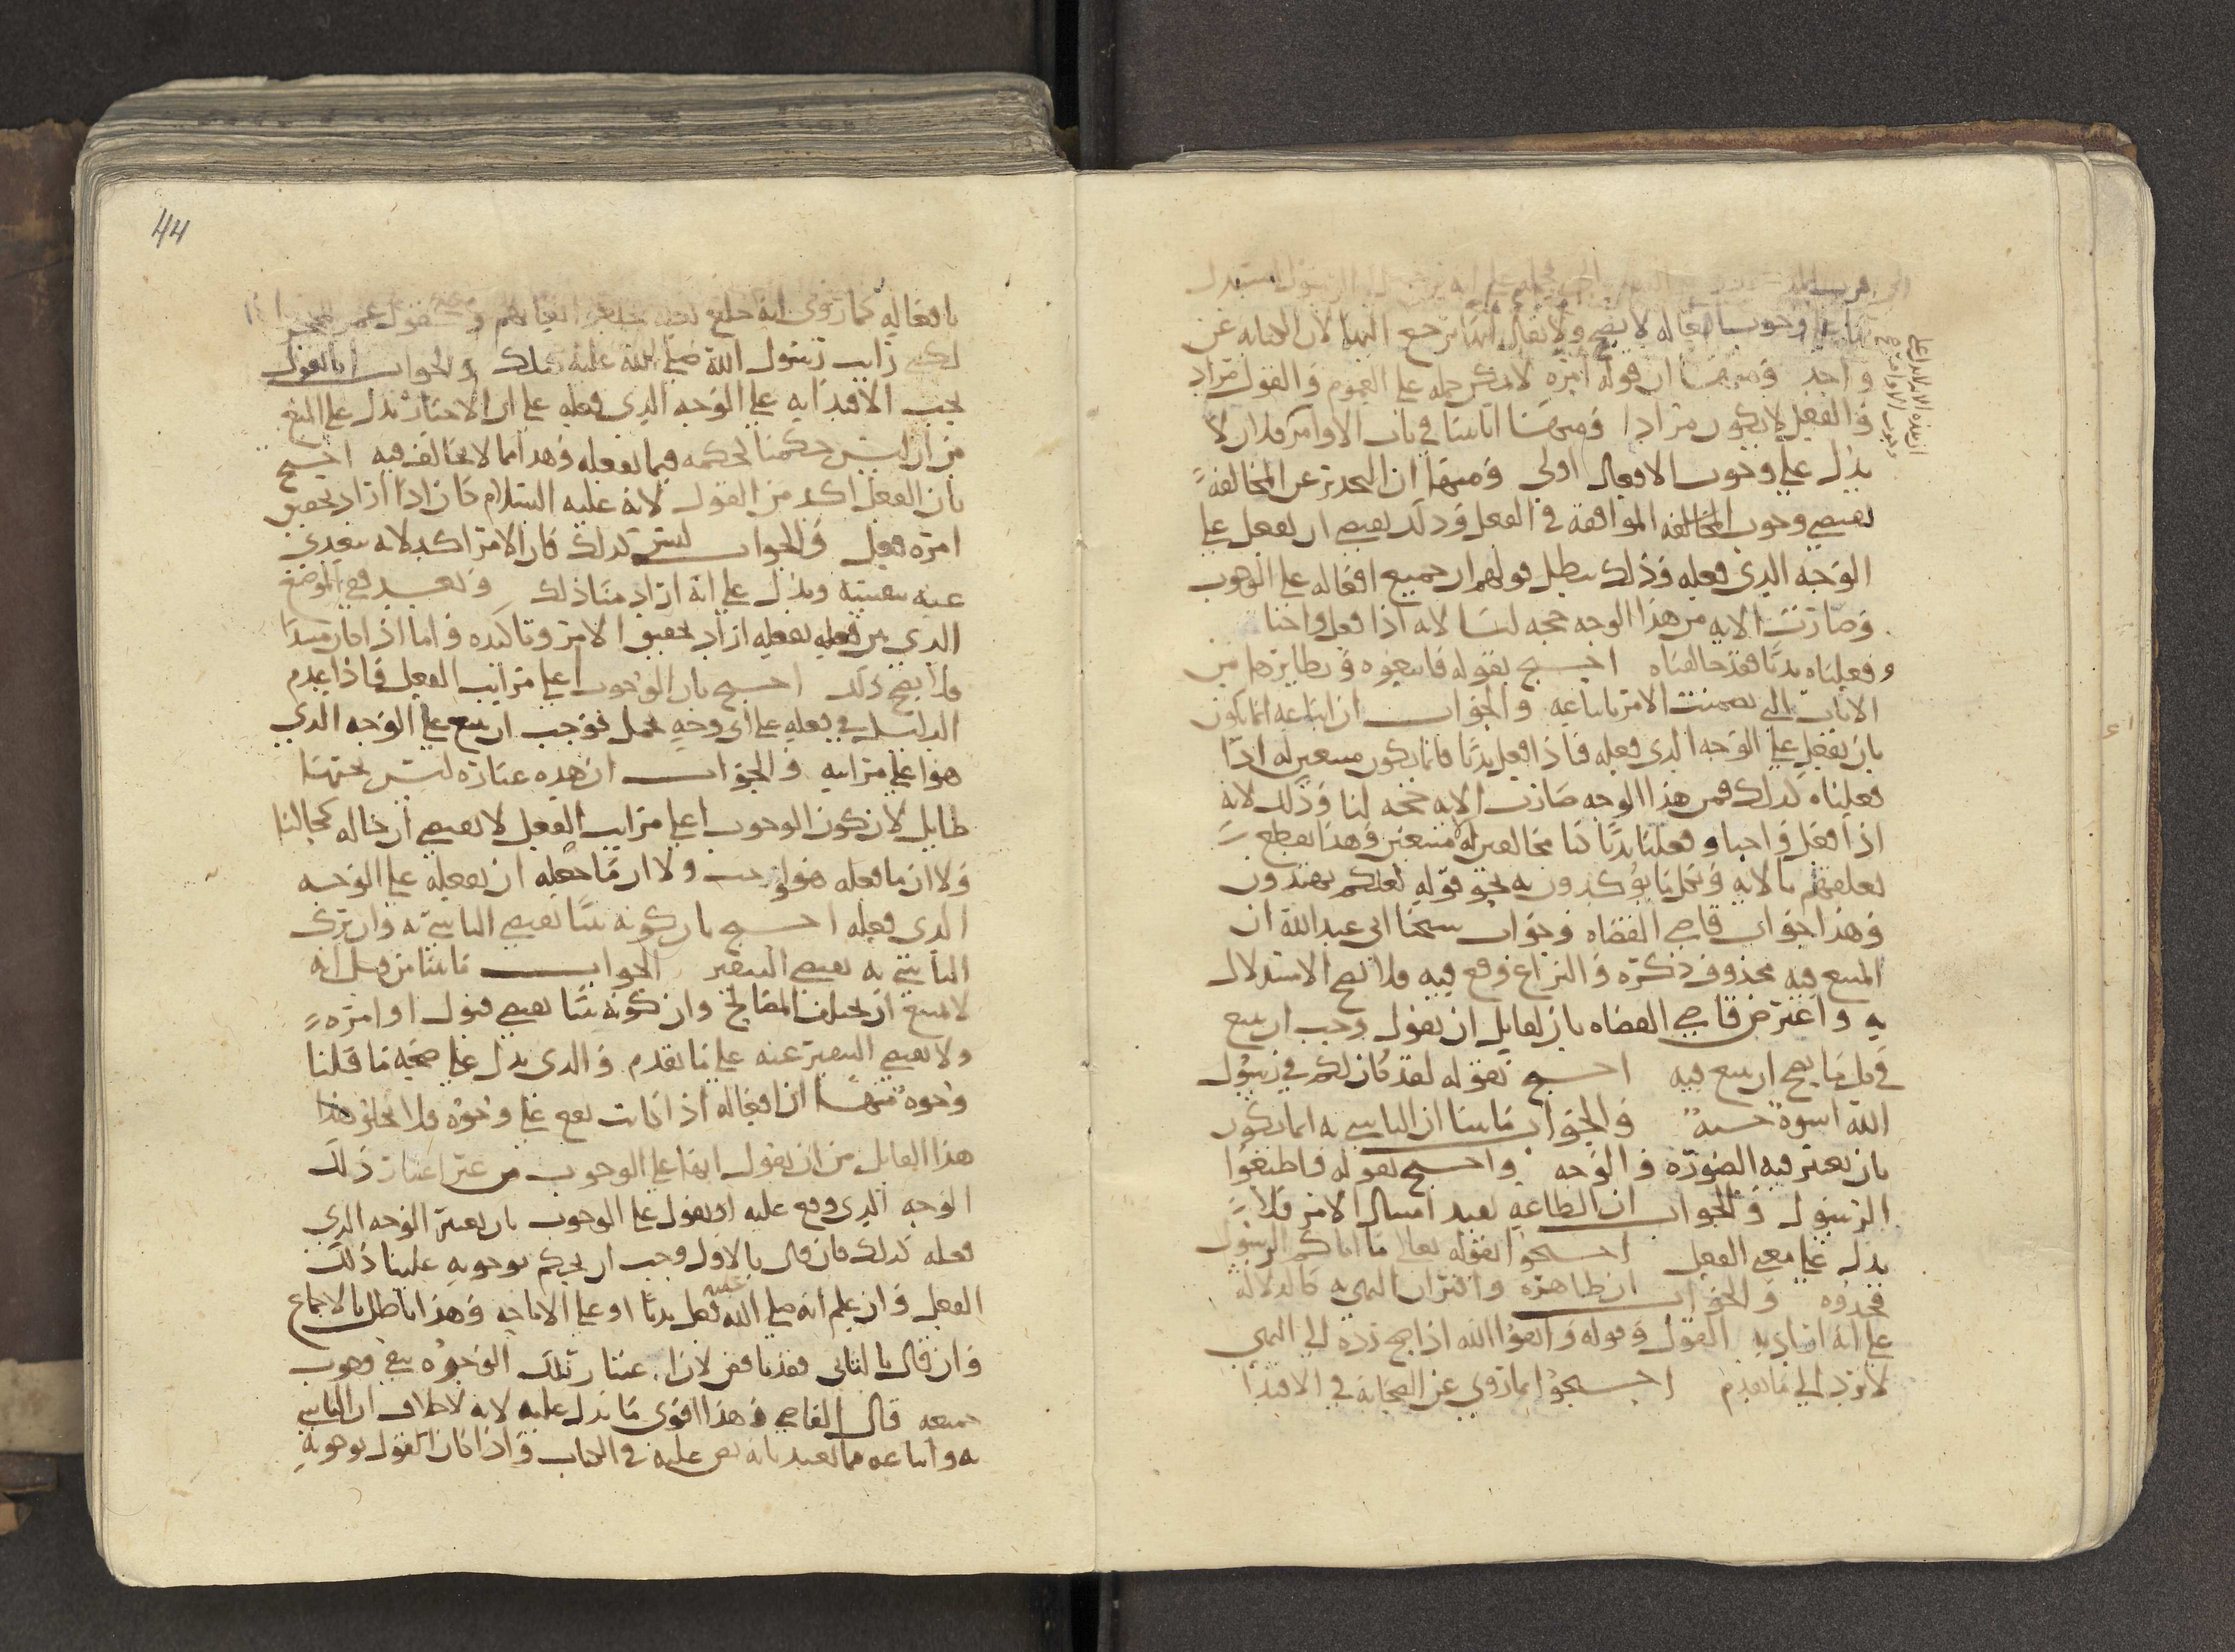 وجوب افعاله لا يصح ولا يقال انها ترجع اليها لان الكنايه عن
واحد ومنها ان قوله امره لا يمكن حمله على العموم والقول مراد
والفعل لا يكون مرادا ومنها انا بينا في باب الاوامر فلان لا
يدل على وجوب الافعال اولى ومنها ان التحذير عن المخالفة
يقتضي وجوب المخالفه الموافقة في الفعل وذلك يقتضي ان يفعل على
الوجه الذي فعله وذلك يبطل قولهم ان جميع افعاله على الوجوب
وصارت الايه من هذا الوجه حجه لنا لانه اذا فعل واجبا
وفعلناه ندبا فقد خالفناه احتج بقوله فاتبعوه ونظايرها من
الايات التي تضمنت الامر باتباعه والجواب ان اتباعه انما يكون
بان يفعل على الوجه الذي فعله فاذا فعل ندبا فانما يكون متبعين له اذا
فعلناه كذلك فمن هذا الوجه صارت الايه حجه لنا وذلك لانه
اذا فعل واجبا وفعلنا ندبا كنا مخالفين له لا متبعين وهذا يقطع
تعلقهم بالايه وكل ما يؤكدون به نحو قوله لعلكم تهتدون
وهذا جواب قاضي القضاه وجواب شيخنا ابي عبد الله ان
المتبع فيه محذوف ذكره والنزاع وقع فيه فلا يصح الاستدلال
به واعترض قاضي القضاه بان لقايل ان يقول وجب ان يتبع
في كل ما يصح ان يتبع فيه احتج بقوله لقد كان لكم في رسول
الله اسوة حسنة والجواب ما بينا ان التاسي به انما يكون
بان يعتبر فيه الصورة والوجه واحتج بقوله واطيعوا
الرسول والجواب ان الطاعه تفيد امتثال الامر فلا
يدل على معنى الفعل احتجوا بقوله تعالى ما اتاكم الرسول
فخذوه والجواب ان ظاهره واقتران النهي به كالدلالة
على انه اراد به القول وقوله واتقوا الله اذا صح رده الى النهي
لا يرد الى ما تقدم احتجوا بما روي عن الصحابة في الاقتدا
44
بافعاله كما روي انه خلع نعله فخلعوا نعالهم
رايت رسول الله صلى الله عليه والجواب انا نقول
يجب الاقتدا به على الوجه الذي فعله على ان الاخبار تدل على المنع
من ان ليس حكمنا كحكمه فيما يفعله وهذا مما لا يخالف فيه احتج
بان الفعل اكد من القول لانه عليه السلام كان اذا اراد تحقيق
امره فعل والجواب ليس كذلك فان الامر اكد لانه يتعدى
عنه بنفسه ويدل على انه اراد منا ذلك وتفسير في الموضع
الذي بين فعله بفعله اراد تحقيق الامر وتاكيده فاما اذا كان مبتدا
فلا يصح ذلك احتج بان الوجوب اعلى مراتب الفعل فاذا عدم
الدليل في فعله على اي وجه يحمل فوجب ان يتبع على الوجه الذي
هو اعلى مراتبه والجواب ان هذه عبارة ليس تحتها
طايل لان كون الوجوب اعلى مراتب الفعل لا يقتضي ان حاله كحالنا
ولا ان ما فعله هو واجب ولا ان ما جعله ان يفعله على الوجه
الذي فعله احتج بان كونه نبيا يقتضي التاسي به وان ترك
التاسي به يقتضي التنفير الجواب ما بينا من قبل انه
لا يمتنع ان يختلف المصالح وان كونه نبيا يقتضي قبول اوامره
ولا يقتضي التنفير عنه على ما تقدم والذي يدل على صحة ما قلنا
وجوه منها ان افعاله اذا كانت تقع على وجوه فلا يخلو هذا
هذا القايل من ان يقول انها على الوجوب من غير اعتبار ذلك
الوجه الذي وقع عليه او يقول على الوجوب بان يعتبر الوجه الذي
فعله كذلك فان قال بالاول وجب ان يحكم بوجوبه علينا ذلك
الفعل وان علم انه صلى الله عليه فعل ندبا او على الاباحه وهذا باطل بالاجماع
وان قال بالثاني فقد ناقض لان اعتبار تلك الوجوه ينفي وجوب
جميعه قال القاضي وهذا اقوى ما يدل عليه لانه لا خلاف ان التاسي
به واتباعه مما تعبد بانه نص عليه في الكتاب واذا كان القول بوجوبه